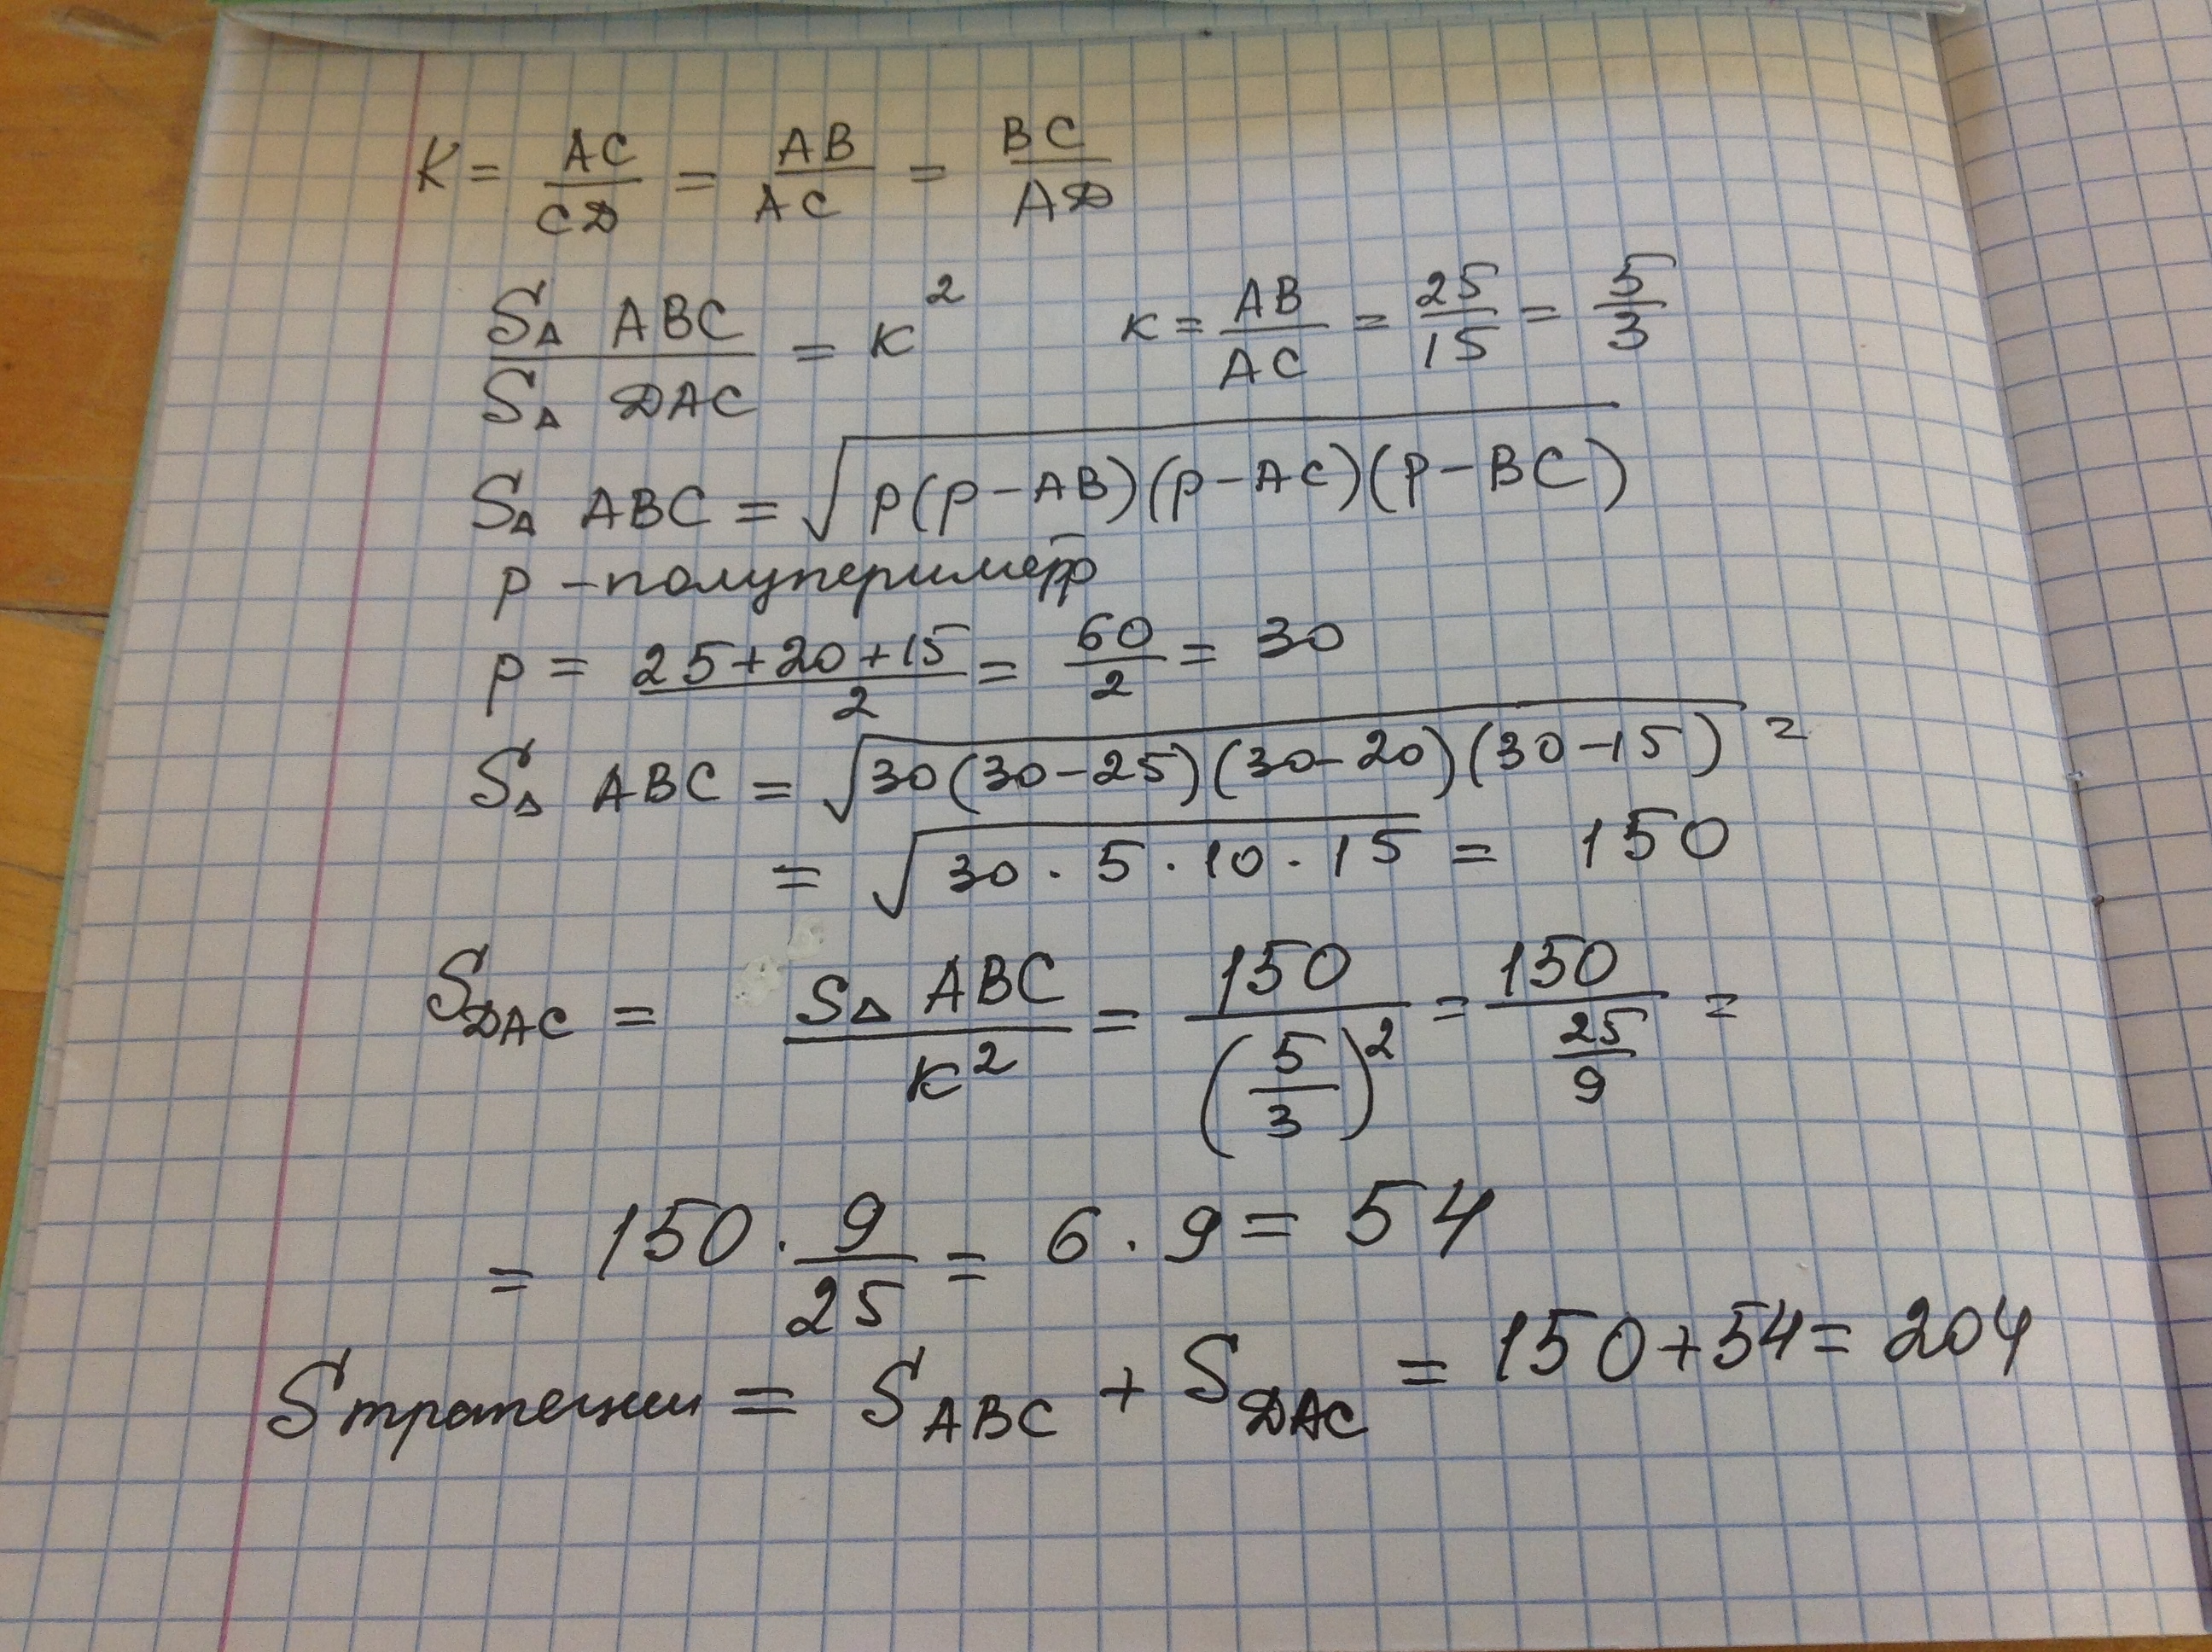 K = AC/CД = AB/AC = BC/AД
S∆ ABC / S∆ ДAC = K² K = AB/AC = 25/15 = 5/3
S∆ ABC = √(p(p-AB)(p-AC)(p-BC))
p - полупериметр
p = (25+20+15)/2 = 60/2 = 30
S∆ ABC = √(30(30-25)(30-20)(30-15)) =
= √(30 · 5 · 10 · 15) = 150
S ДAC = S∆ ABC / K² = 150/(5/3)² = 150/(25/9) =
= 150 · 9/25 = 6 · 9 = 54
S трапеции = S ABC + S ДAC = 150+54= 204